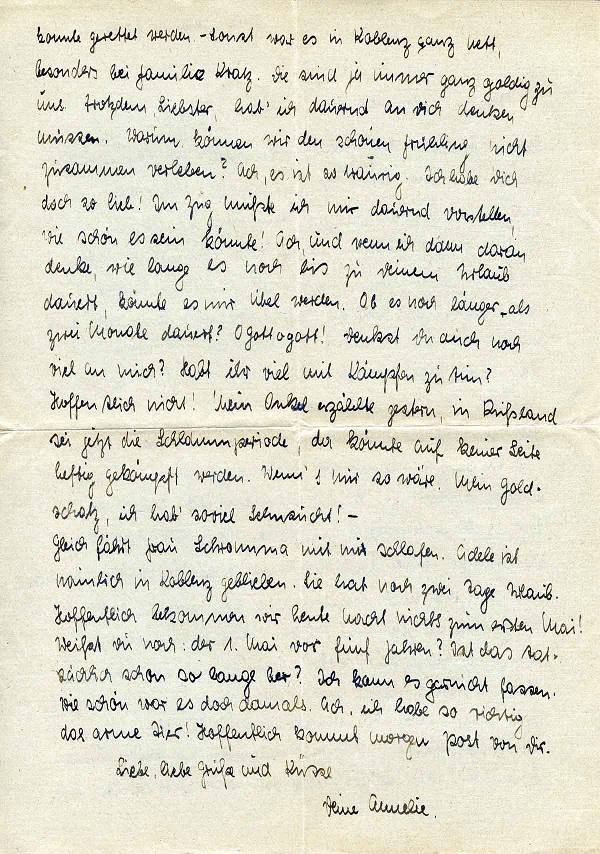 konnte gerettet werden - Sonst war es in Koblenz ganz nett,
besonders bei Familie Kratz. Die sind ja immer ganz goldig zu
uns. Trotzdem, Liebster, hab' ich dauernd an Dich denken
müssen. Warum können wir den schönen Frühling nicht
zusammen verleben? Ach, es ist so traurig. Ich habe Dich
doch so lieb! Im Zug mußte ich mir dauernd vorstellen,
wie schön es sein könnte! Ach, und wenn ich dann daran
denke, wie lange es noch bis zu Deinem Urlaub
dauert, könnte es mir übel werden. Ob es noch länger als
zwei Monate dauert? Ogottogott! Denkst Du auch noch
viel an mich? Habt ihr viel mit Kämpfen zu tun?
Hoffentlich nicht! Mein Onkel erzählte gestern, in Rußland
sei jetzt die Schlammperiode, da könnte auf keiner Seite
heftig gekämpft werden. Wenn's nur so wäre. Mein Gold-
schatz, ich hab' soviel Sehnsucht! -
Gleich fährt Frau Schramma mit mir schlafen. Adele ist
nämlich in Koblenz geblieben. Sie hat noch zwei Tage Urlaub.
Hoffentlich bekommen wir heute Nacht nichts zum ersten Mai!
Weißt Du noch: der 1. Mai vor fünf Jahren? Ist das tat-
sächlich schon so lange her? Ich kann es garnicht fassen.
Wie schön war es doch damals. Ach, ich habe so richtig
das arme Tier! Hoffentlich kommt morgen Post von Dir.
Liebe, liebe Grüße und Küsse
Deine Annelie.